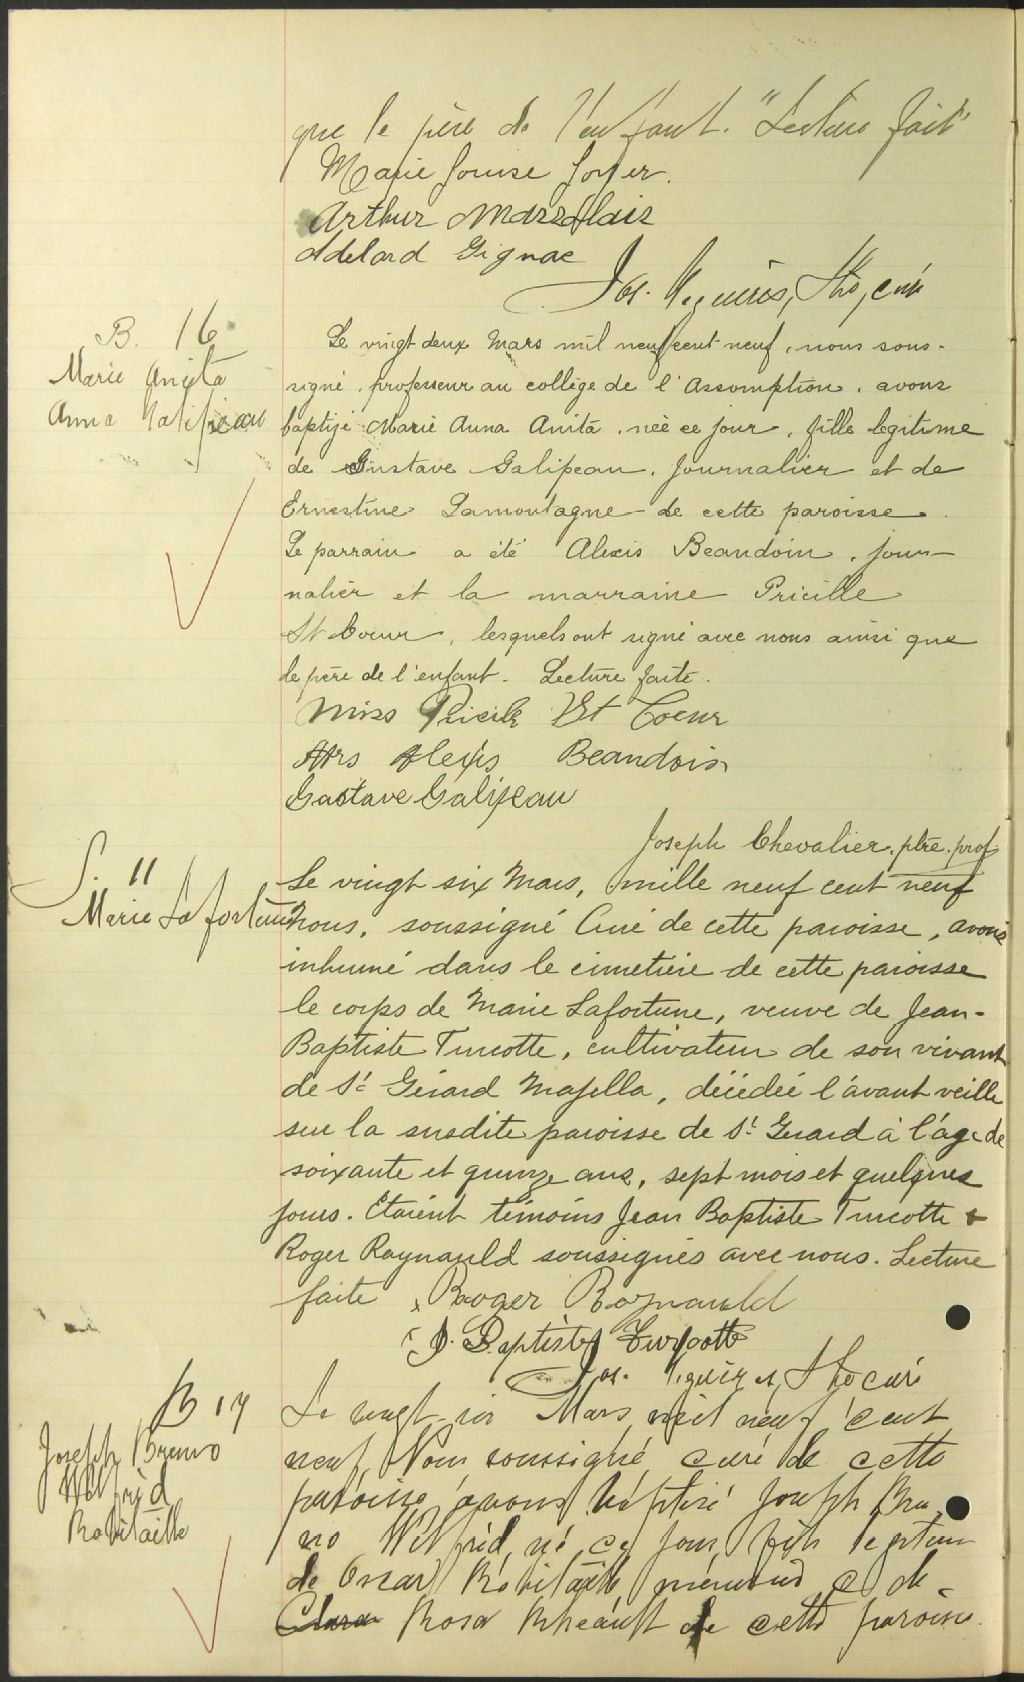 que le père de l'enfant. "Lecture fait"
Marie Louise
Arthur
Adelard Gignac
Jos.
B. 16
Marie Anita
Anna Galipeau
Le vingt deux Mars mil neuf cent neuf, nous sous-
signé, professeur au collège de l'Assomption, avons
baptisé Marie Anna Anita, née ce jour, fille légitime
de Gustave Galipeau, journalier et de
Ernestine Lamontagne de cette paroisse.
Le parrain a été Alexis Beaudoin, jour-
nalier et la marraine Pricille
St Coeur, lesquels ont signé avec nous ainsi que
le père de l'enfant. Lecture faite.
Miss Pricile St Coeur
Mrs Alexis Beaudoin
Gustave Galipeau
Joseph Chevalier, ptre. prof.
S. 11
Marie Lafortune
Le vingt six Mars, mille neuf cent neuf
Nous, soussigné Curé de cette paroisse, avons
inhumé dans le cimetière de cette paroisse
le corps de Marie Lafortune, veuve de Jean-
Baptiste Turcotte, cultivateur de son vivant
de St Gérard Majella, décédée l'avant veille
sur la susdite paroisse de St Gerard à l'âge de
soixante et quinze ans, sept mois et quelques
jours. Etaient témoins Jean Baptiste Turcotte &
Roger Raynauld soussignés avec nous. Lecture
faite x Roger Raynauld
J. Baptiste Turcotte
Jos. curé
B 17
Joseph Bruno
Wilfrid
Robitaille
Le vingt-six Mars mil neuf cent
neuf, Nous soussigné, curé de cette
paroisse avons baptisé Joseph Bru-
no Wilfrid, né ce jour, fils legitime
de Oscar Robitaille, et de
Clara Rosa Rhéault de cette paroisse